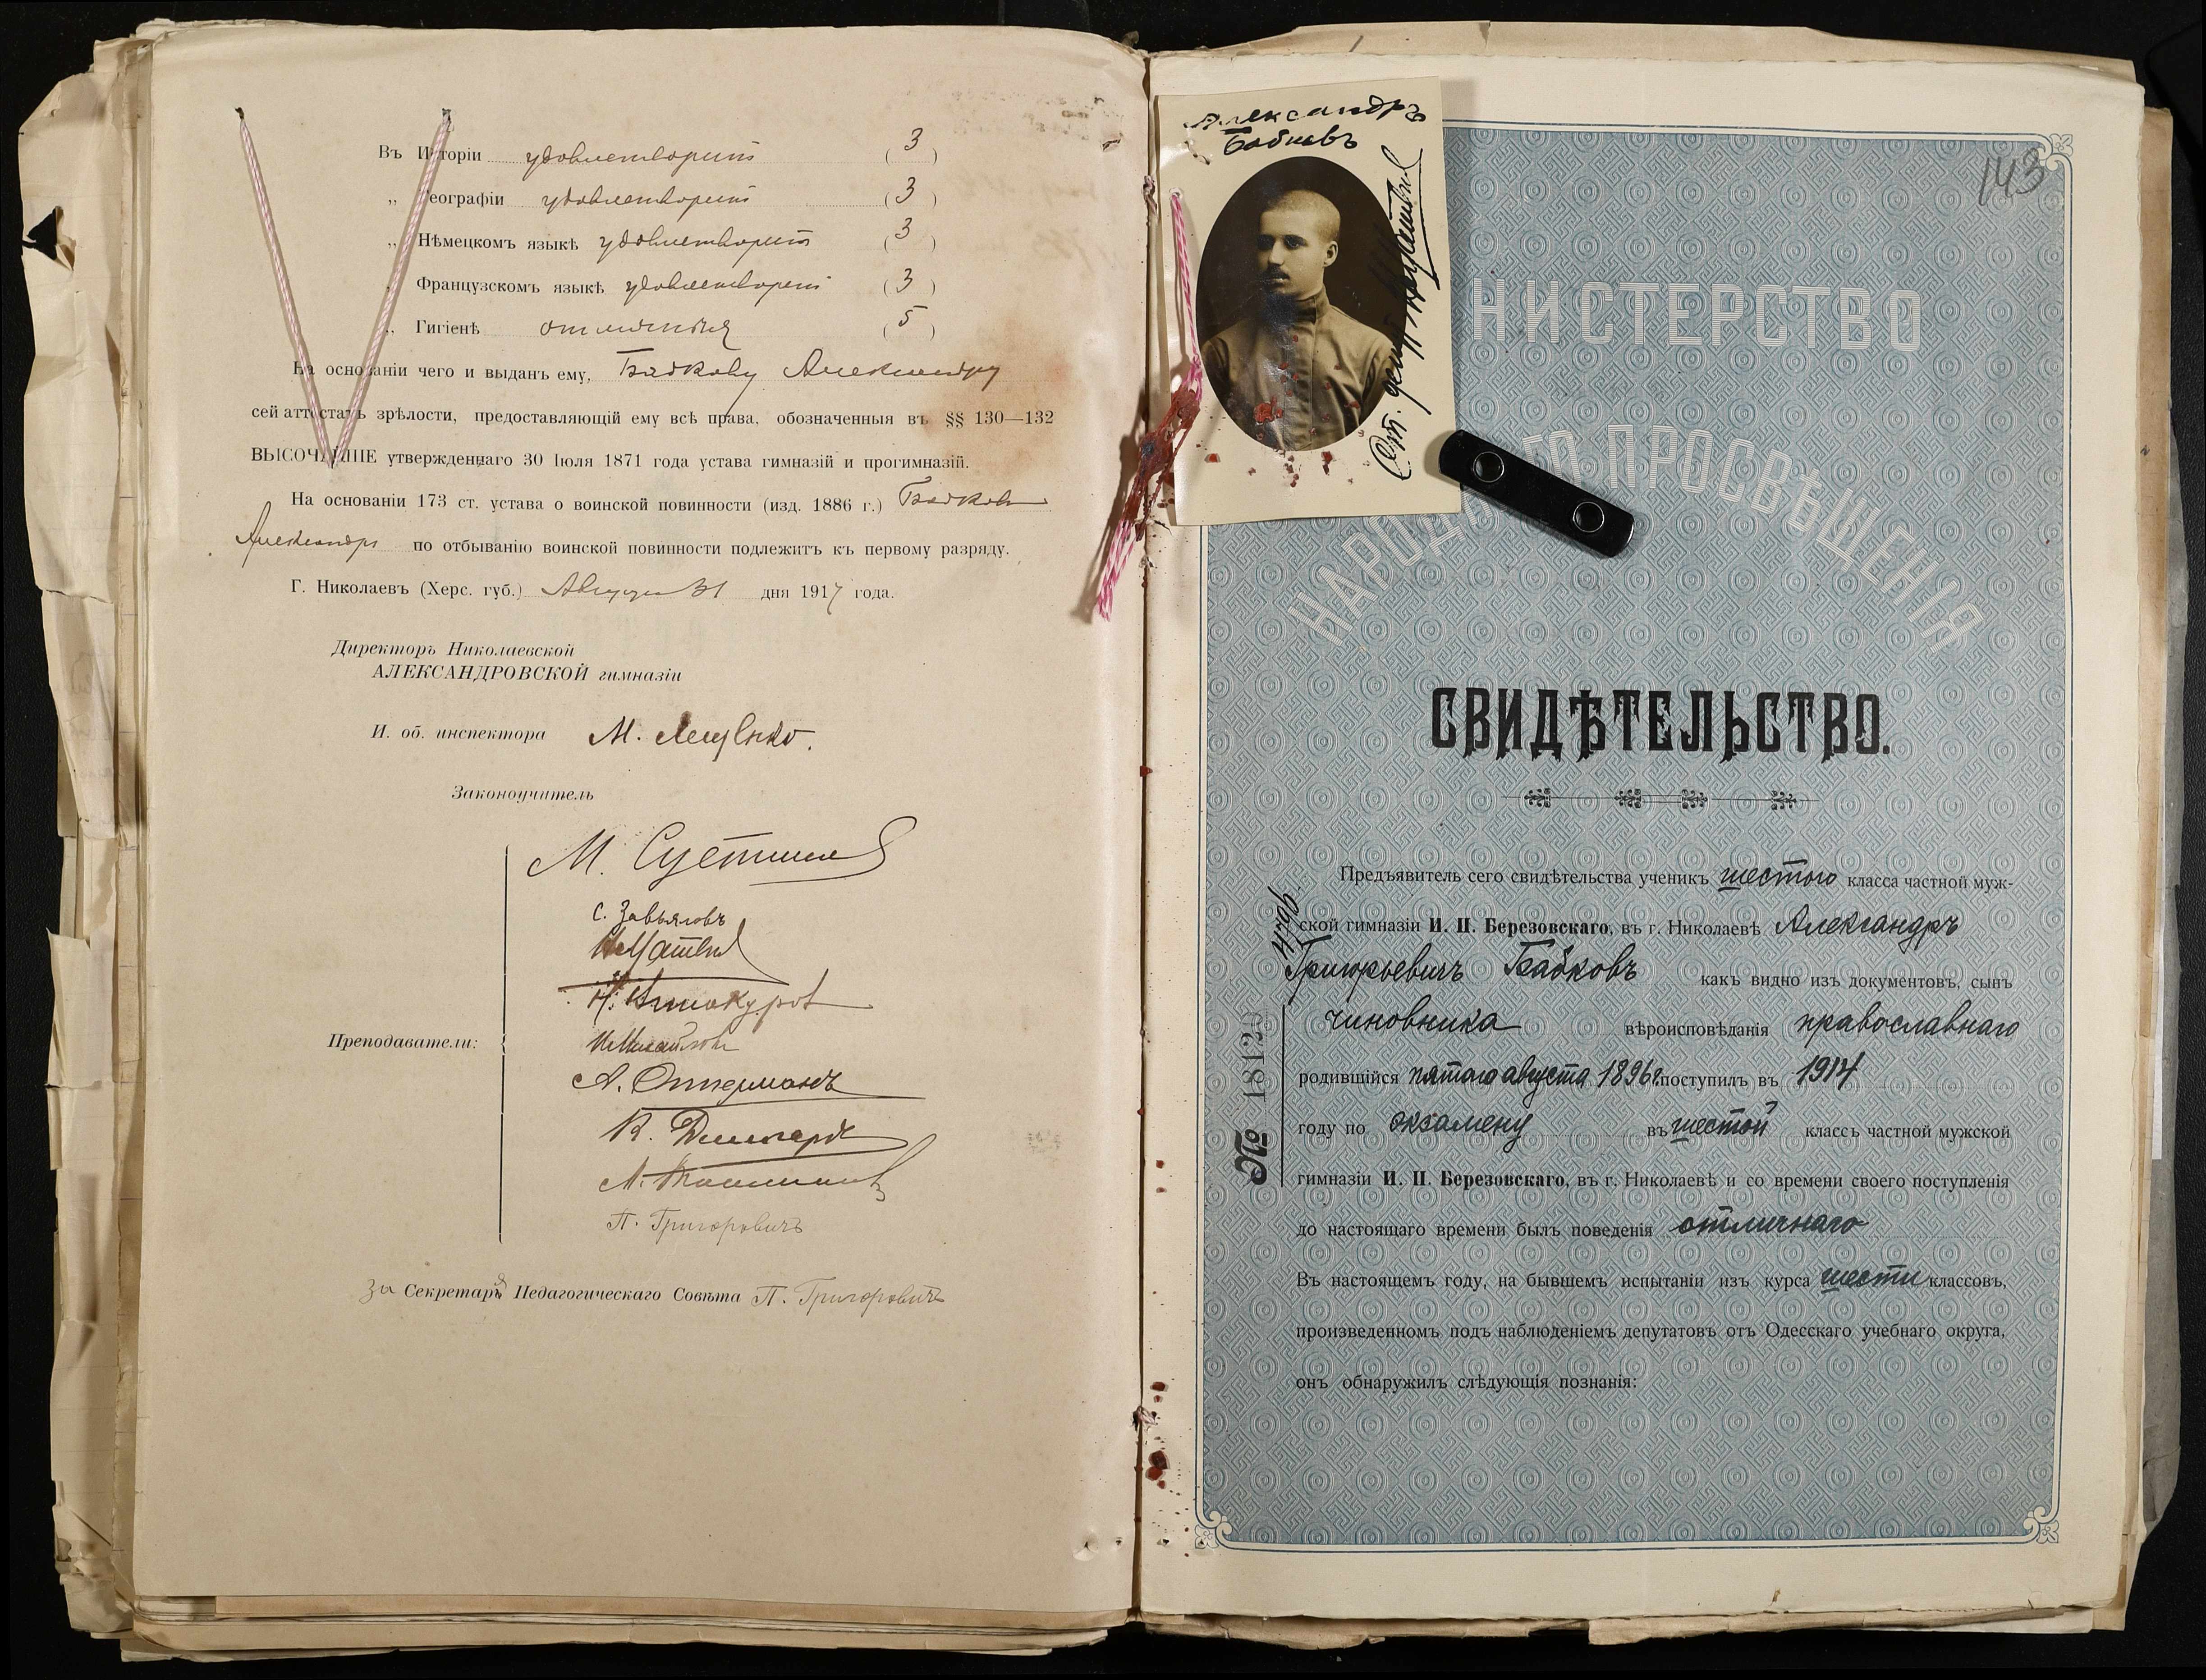 Въ Исторіи удовлетворит (3)
„ Географіи удовлетворит (3)
„ Нѣмецкомъ языкѣ удовлетворит (3)
„ Французскомъ языкѣ удовлетворит (3)
„ Гигіенѣ отлична (5)
На основаніи чего и выданъ ему, Бабкову Александру
сей аттестатъ зрѣлости, предоставляющій ему всѣ права, обозначенныя въ §§ 130—132
ВЫСОЧАЙШЕ утвержденнаго 30 Іюля 1871 года устава гимназій и прогимназій.
На основаніи 173 ст. устава о воинской повинности (изд. 1886 г.) Бабковъ
Александръ по отбыванію воинской повинности подлежитъ къ первому разряду.
Г. Николаевъ (Херс. губ.) Августа 31 дня 1917 года.
Директоръ Николаевской
АЛЕКСАНДРОВСКОЙ гимназіи
И. об. инспектора М.
Законоучитель
Преподаватели:
М.
С. Завьяловъ
А.
К.
П. Григоровичъ
За Секретаря Педагогическаго Совѣта П. Григоровичъ
Александръ
Бабковъ
143
МИНИСТЕРСТВО
НАРОДНАГО ПРОСВѢЩЕНІЯ
СВИДѢТЕЛЬСТВО.
Предъявитель сего свидѣтельства ученикъ шестого класса частной муж-
ской гимназіи И. П. Березовскаго, въ г. Николаевѣ Александръ
Григорьевичъ Бабковъ какъ видно изъ документовъ, сынъ
чиновника вѣроисповѣданія православнаго
родившійся пятаго августа 1896 г. поступилъ въ 1914
году по экзамену въ шестой классъ частной мужской
гимназіи И. П. Березовскаго, въ г. Николаевѣ и со времени своего поступленія
до настоящаго времени былъ поведенія отличнаго
Въ настоящемъ году, на бывшемъ испытаніи изъ курса шести классовъ,
произведенномъ подъ наблюденіемъ депутатовъ отъ Одесскаго учебнаго округа,
онъ обнаружилъ слѣдующія познанія:
№ 18120